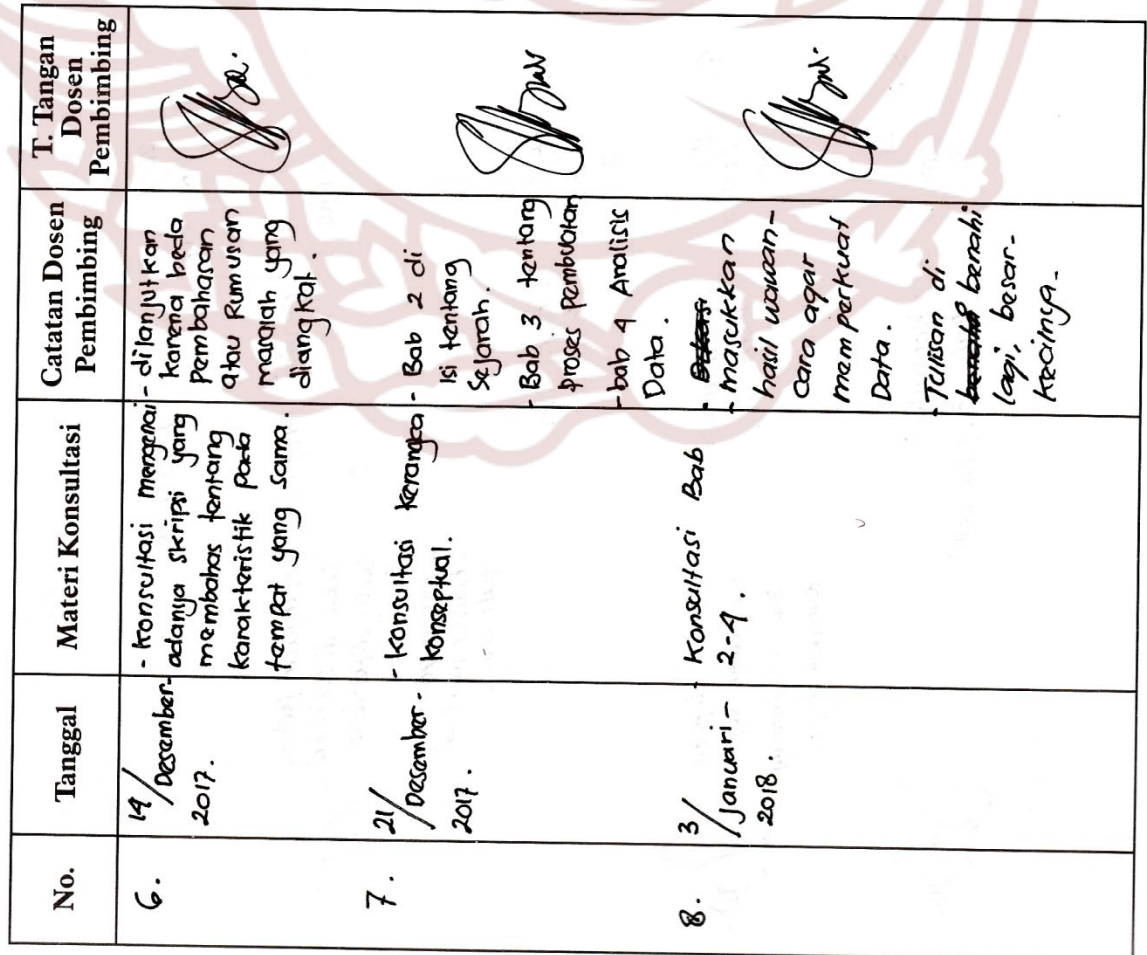 No.
Tanggal
Materi Konsultasi
Catatan Dosen
Pembimbing
T. Tangan
Dosen
Pembimbing
6.
14/Desember-
2017.
- Konsultasi mengenai
adanya skripsi yang
membahas tentang
karakteristik pada
tempat yang sama.
- dilanjutkan
karena beda
Pembahasan
atau Rumusan
masalah yang
diangkat.
7.
21/Desember-
2017.
- Konsultasi kerangka
konseptual.
- Bab 2 di
isi tentang
Sejarah.
- Bab 3 tentang
proses pembuatan
- bab 4 Analisis
Data.
8.
3/Januari-
2018.
- Konsultasi Bab
2-4.
- masukkan
hasil wawan-
cara agar
memperkuat
Data.
- Tulisan di
benahi
lagi, besar-
kecilnya.